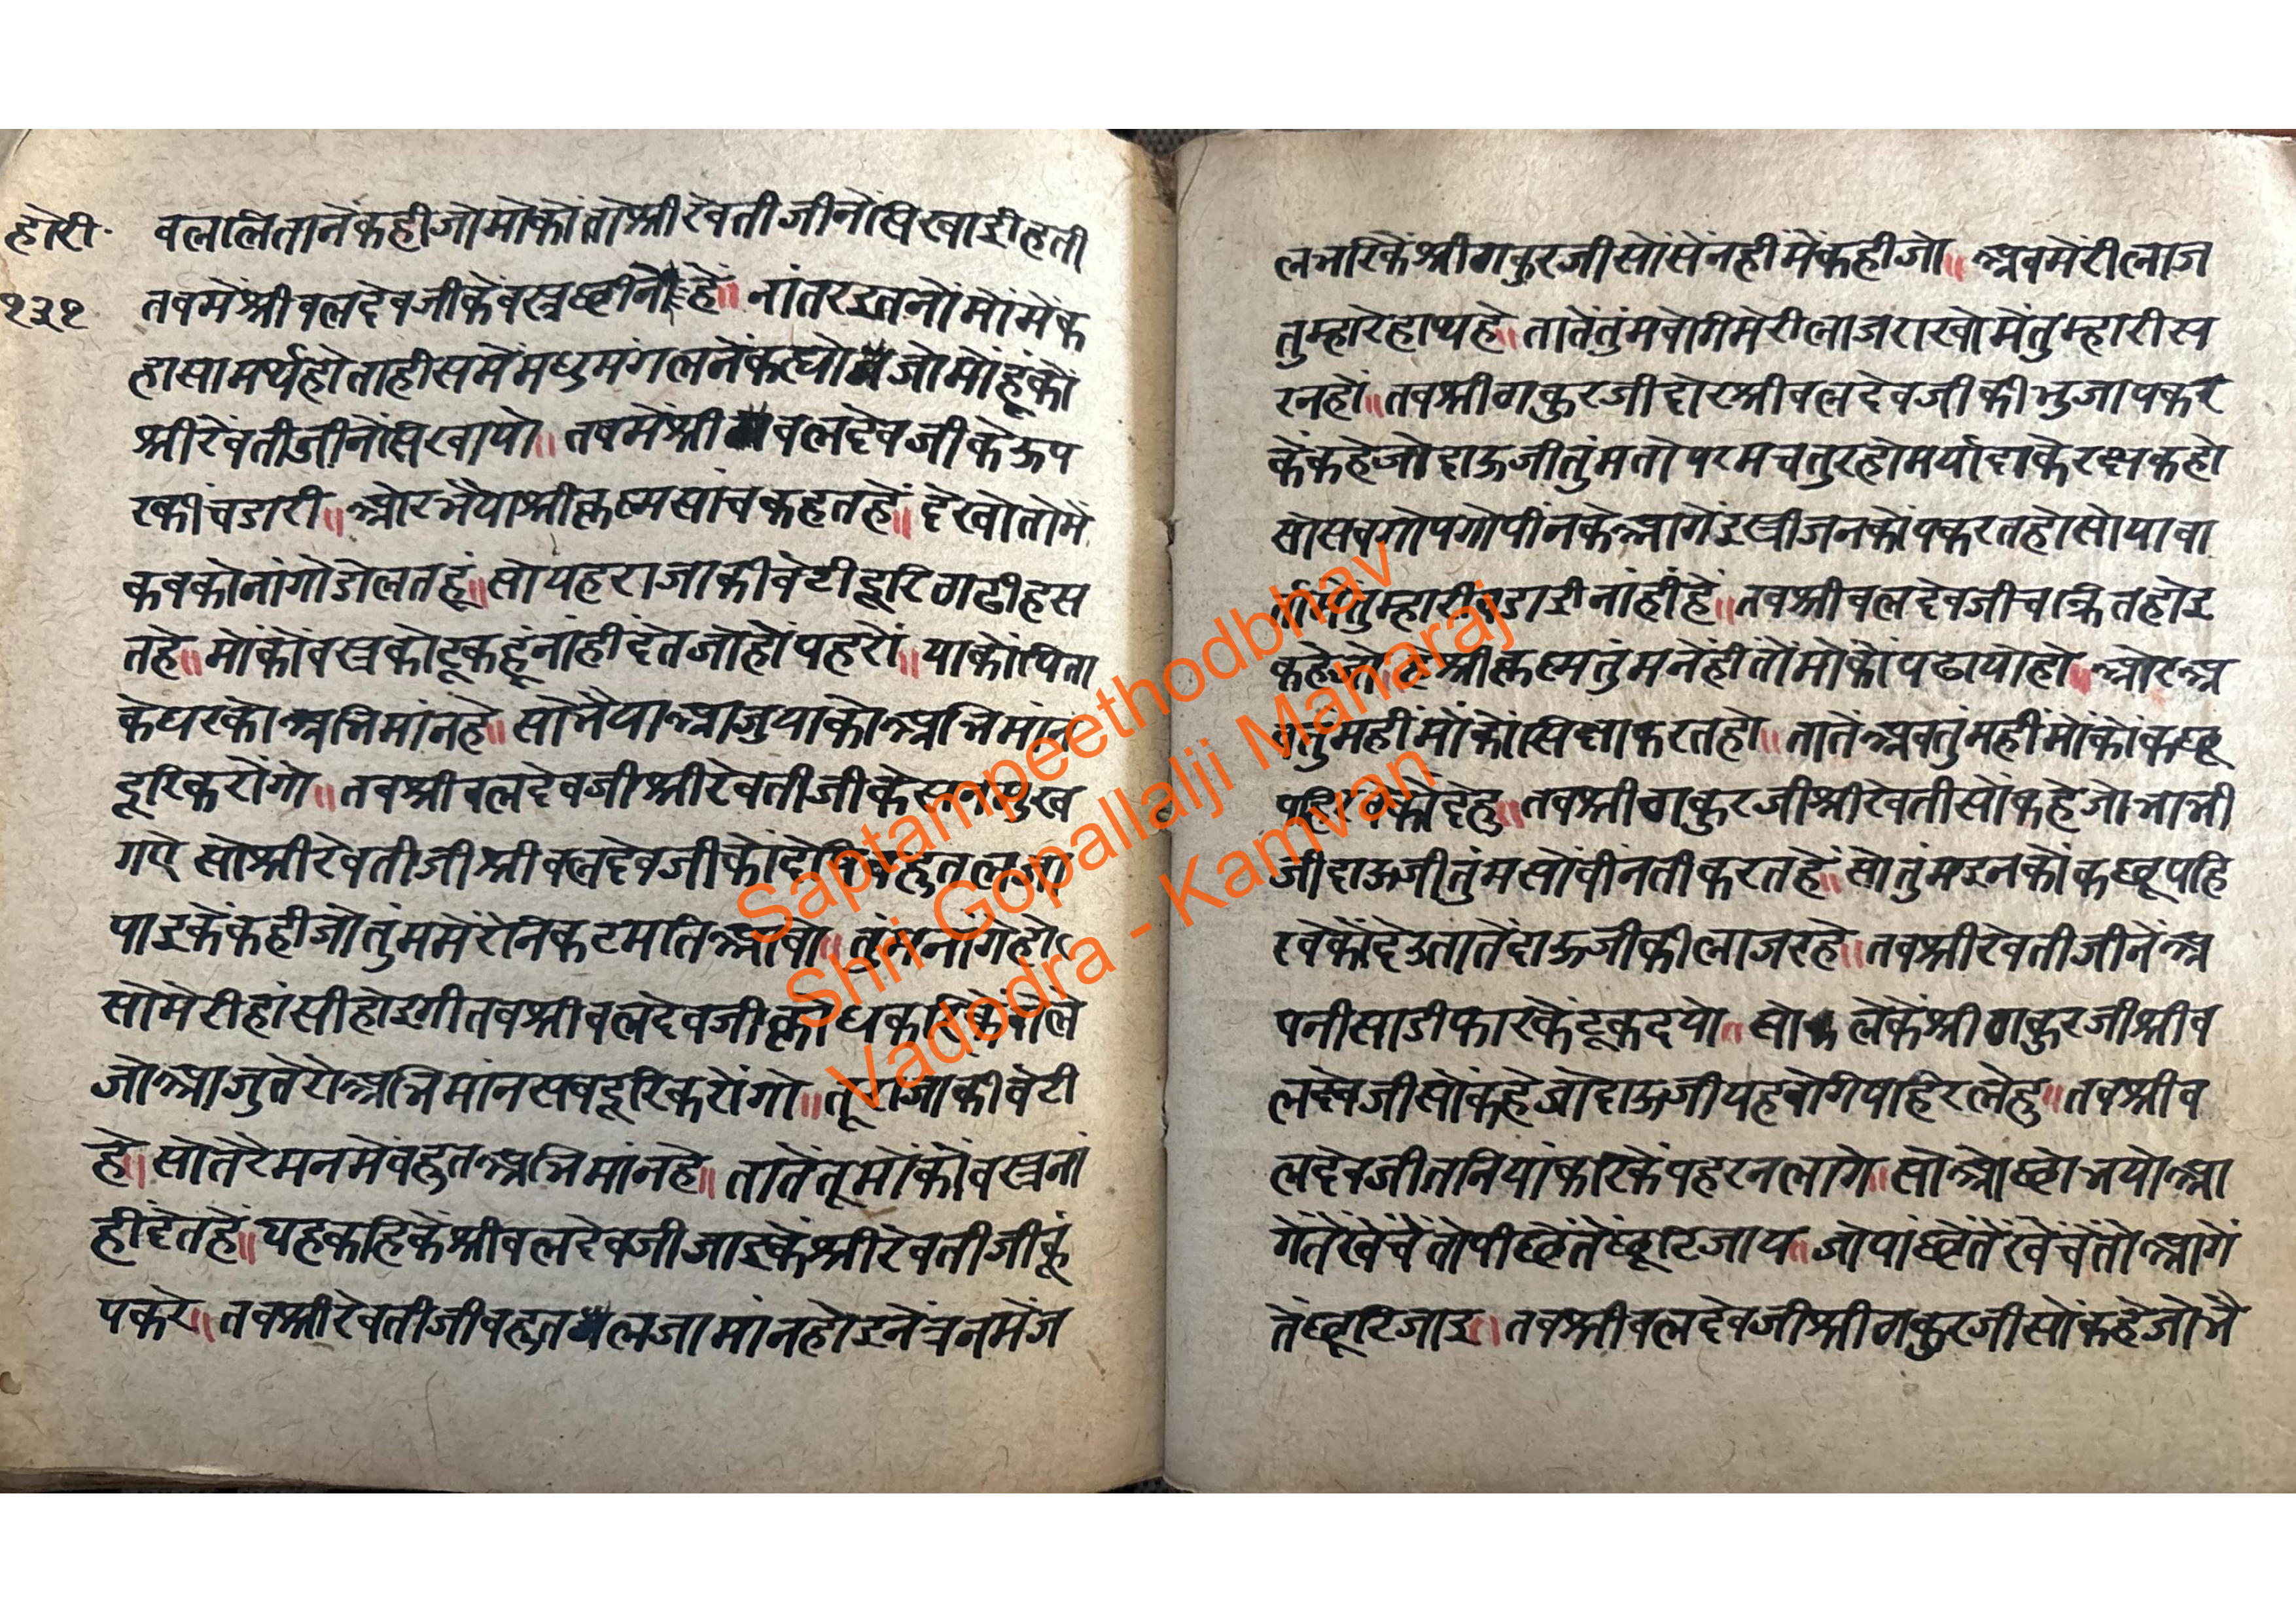 होरी
१३१
वललितानेंकहीजोमोकोंतोश्रीरेवतीजीनेंसिखाईहती
तवमेंश्रीवलदेवजीकेवस्त्रछीने हें॥ नांतरइतनोंमोंमेंक
हासामर्थहोताहीसमेंमधुमंगलनेंकह्यो जोमोंहूंकों
श्रीरेवतीजीनेंसिखायो॥ तवमेंश्री वलदेवजीकेऊप
रकीचडारी॥ ओरभैयाश्रीकृष्मसांचकहतहें॥ देखोतोमें
कवकोनांगोडोलतहूं॥ सोयहराजाकीवेटीदूरिठाढीहस
तहे॥ मोंकोंवस्त्रकोटूकहूंनांहीदेतजोहोंपहरों॥ याकोंपिता
केघरकोअभिमांनहे॥ सोभैयाआजुयाकोअभिमांन
दूरिकरोंगो॥ तवश्रीवलदेवजीश्रीरेवतीजीकेसनमुख
गए सोश्रीरेवतीजीश्रीवलदेवजीकोंदेखिवहुतलजा
पाइकेंकहीजोतुंममेंरेनिकटमतिआवो॥ तुंमनांगेहो
सोमेरीहांसीहोइगीतवश्रीवलदेवजीक्रोधकरिकेंवोले
जोआजुतेरोअभिमांनसवदूरिकरोंगो॥ तूराजाकीवेटी
हे॥ सोतेरेमनमेंवहुतअभिमांनहे॥ तातेंतूमोंकोंवस्त्रनां
हीदेतहे॥ यहकहिकेंश्रीवलदेवजीजाइकेंश्रीरेवतीजीकूं
पकरे॥ तवश्रीरेवतीजीवहुत लजामांनहोइनेंत्रनमेंज
लभरिकेंश्रीठाकुरजीसोंसेंनहीमेंकहीजो॥ अवमेंरीलाज
तुम्हारेहाथहे॥ तातेंतुंमवेगिमेरीलाजराखोमेंतुम्हारीस
रनहों॥ तवश्रीठाकुरजीदोरश्रीवलदेवजीकीभुजापकर
केंकहेजोदाऊजीतुंमतोपरमचतुरहोमर्यादाकेरक्षकहो
सोसवगोपगोपीनकेआगेंइस्त्रीजनकोंपकरतहोसोयावा
तमेंतुम्हारीवडाईनांहींहें॥ तवश्रीवलदेवजीचक्रितहोइ
कहेजो श्रीकृष्मतुंमनेंहीतोंमोकोंपढायोहो॥ ओरअ
वतुंमहींमोंकोंसिक्षाकरतहो॥ तातेंअवतुंमहींमोंकोंकछू
पहिरवेकोंदेहु॥ तवश्रीठाकुरजीश्रीरेवतीसोंकहेजोभाभी
जीदाऊजीतुंमसोंवीनतीकरतहें॥ सोतुंमइनकोंकछूपहि
रवेकोंदेउतातेंदाऊजीकीलाजरहे॥ तवश्रीरेवतीजीनेंअ
पनीसाडीफारकेंटूकदयो॥ सो लेकेंश्रीठाकुरजीश्रीव
लदेवजीसोंकहेजोदाऊजीयहवेगिपहिरलेहु॥ तवश्रीव
लदेवजीतनियांकरिकेंपहरनलागे॥ सोओछोभयोआ
गेंतेंखेंचेंतोपीछेंतेंछूटिजाय॥ जोपांछेंतेंखेंचेंतोआगें
तेंछूटिजाइ॥ तवश्रीवलदेवजीश्रीठाकुरजीसोंकहेजोभै